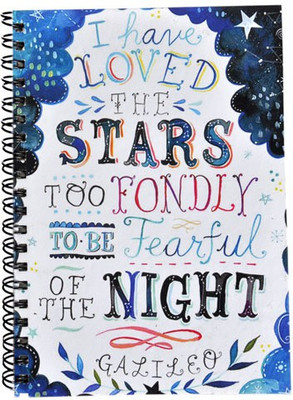 I have
LOVED
THE
STARS
TOO FONDLY
TO BE Fearful
OF THE NIGHT
GALILEO